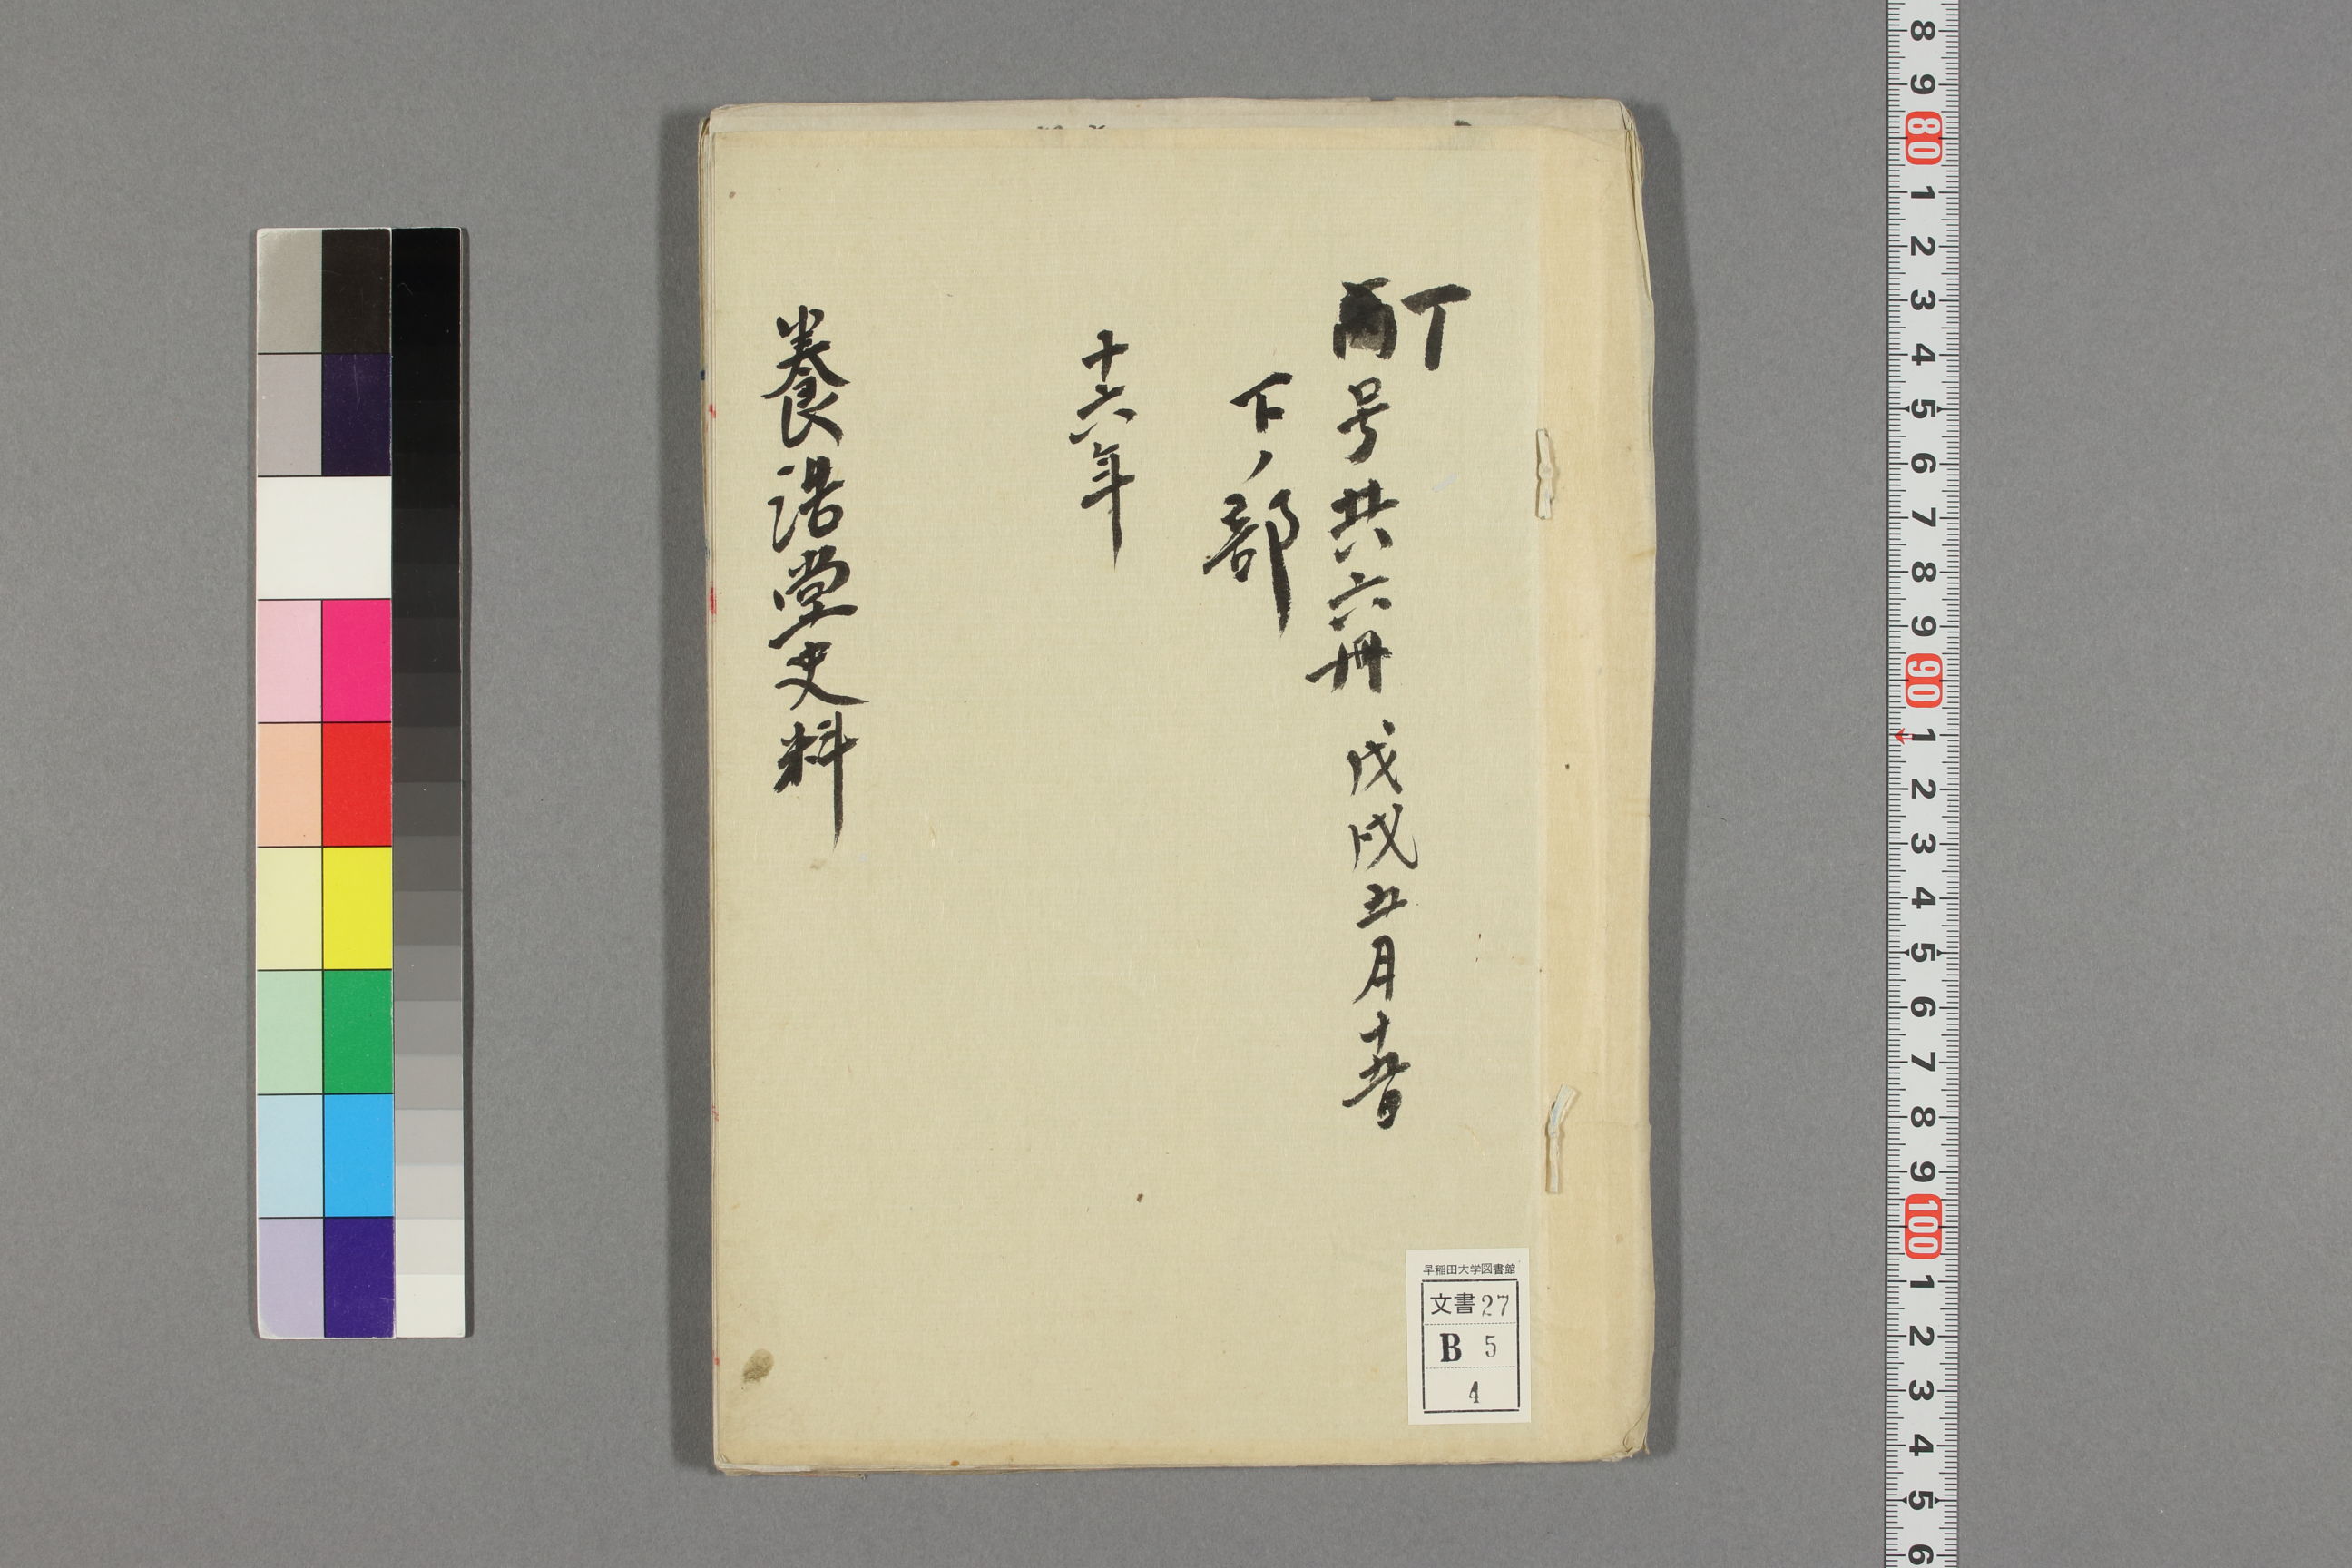 丁
丙号共六冊 戊戌五月十五日
下ノ部
十六年
養浩堂史料
早稲田大学図書館
文書27
B 5
4
8
9
80
1
2
3
4
5
6
7
8
9
90
1
2
3
4
5
6
7
8
9
100
1
2
3
4
5
6